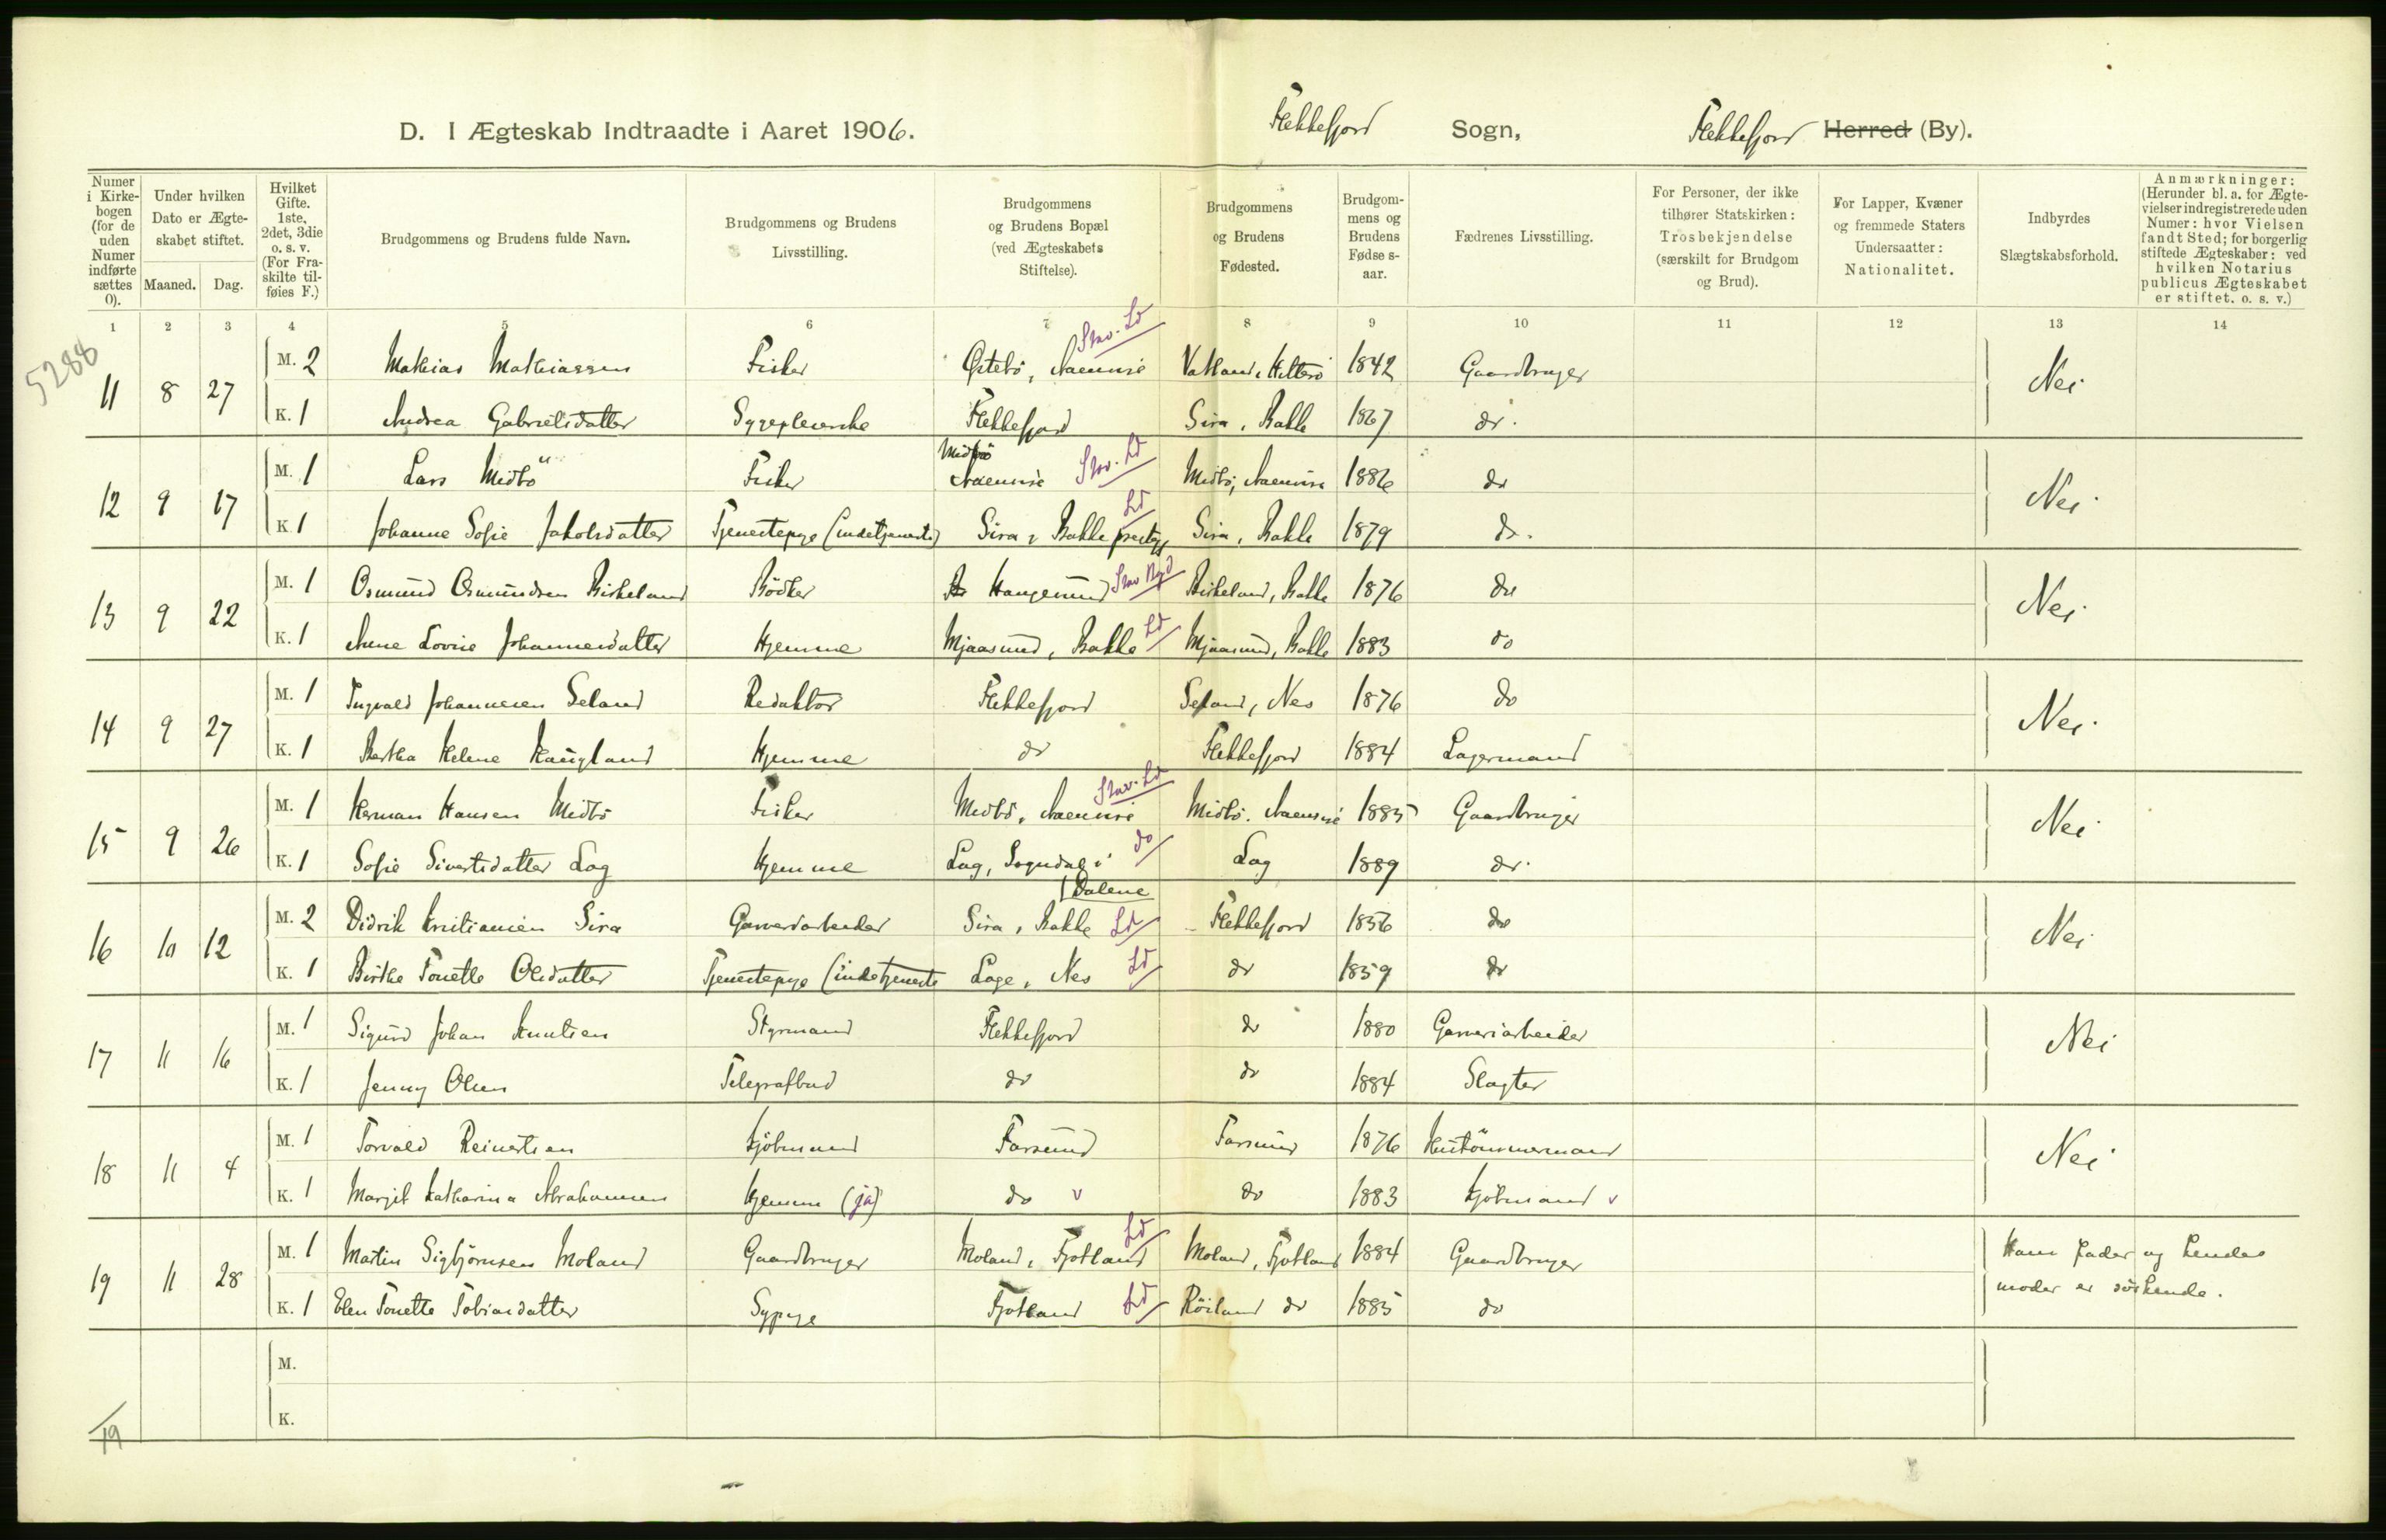 D. I Ægteskab Indtraadte i Aaret 1906. Flekkefjord Sogn, Flekkefjord Herred (By).
Numer i Kirkebogen (for de uden Numer indførte sættes 0).
Under hvilken Dato er Ægteskabet stiftet.
Maaned. Dag.
Hvilket Gifte. 1ste, 2det, 3die o. s. v. (For Fraskilte tilføies F.)
Brudgommens og Brudens fulde Navn.
Brudgommens og Brudens Livsstilling.
Brudgommens og Brudens Bopæl (ved Ægteskabets Stiftelse).
Brudgommens og Brudens Fødested.
Brudgommens og Brudens Fødselsaar.
Fædrenes Livsstilling.
For Personer, der ikke tilhører Statskirken: Trosbekjendelse (særskilt for Brudgom og Brud).
For Lapper, Kvæner og fremmede Staters Undersaatter: Nationalitet.
Indbyrdes Slægtskabsforhold.
Anmærkninger: (Herunder bl. a. for Ægtevielser indregistrerede uden Numer: hvor Vielsen fandt Sted; for borgerlig stiftede Ægteskaber: ved hvilken Notarius publicus Ægteskabet er stiftet. o. s. v.)
1 2 3 4 5 6 7 8 9 10 11 12 13 14
5288
Stav. Ld
11 8 27 M. 2 Mathias Mathiassen Fisker Østebö, Naensné Vatland, Hitterö 1842 Gaardbruger Nei
K. 1 Andrea Gabrielsdatter Sygepleierske Flekkefjord Sira, Bakke 1867 do.
Midbö Stav. Ld
12 9 17 M. 1 Lars Midbö Fisker Midbö, 1886 do Nei
Ld
K 1 Johanne Sofie Jakobsdatter Tjenestepige (indetjeneste) Sira, Bakke prestgj Sira, Bakke 1879 do.
13 9 22 M. 1 Osmund Osmundsen Birkeland Bödker Haugesund Stav Byd Birkeland, Bakke 1876 do Nei
K. 1 Anne Lovise Johannesdatter Hjemme Mjaasund, Bakke Ld Mjaasund, Bakke 1883 do
14 9 27 M. 1 Ingvald Johannesen Seland Redaktör Flekkefjord Seland, Nes 1876 do Nei
K. 1 Bertha Helene Haugland Hjemme do Flekkefjord 1884 Lagermand
Stav. Ld
15 9 26 M. 1 Herman Hansen Midbö Fisker Midbö, Midbö. 1885 Gaardbruger Nei
K. 1 Sofie Sivertsdatter Log Hjemme Log, Sogndal i do Log 1889 do.
Dalene
16 10 12 M. 2 Didrik Kristiansen Sira Garveriarbeider Sira, Bakke Ld Flekkefjord 1856 do Nei
K. 1 Birthe Tonette Olsdatter Tjenestepige (indetjeneste Loge, Nes Ld do 1859 do
17 11 16 M. 1 Sigurd Johan Knutsen Styrmand Flekkefjord do 1880 Garveriarbeider Nei
K. 1 Jenny Olsen Telegrafbud do do 1884 Slagter
18 11 4 M. 1 Torvald Reinertsen Kjöbmand Farsund Farsund 1876 Hustömmermand Nei
K. 1 Margit Katharina Abrahamsen Hjemme (ja) do v do 1883 Kjöbmand v
19 11 28 M. 1 Martin Sigbjörnsen Moland Gaardbruger Moland, Fjotland Ld Moland, Fjotland 1884 Gaardbruger Hans fader og hendes
K. 1 Elen Tonette Tobiasdatter Sypige Fjotland Ld Röiland do 1885 do moder er söskende.
M.
K.
19